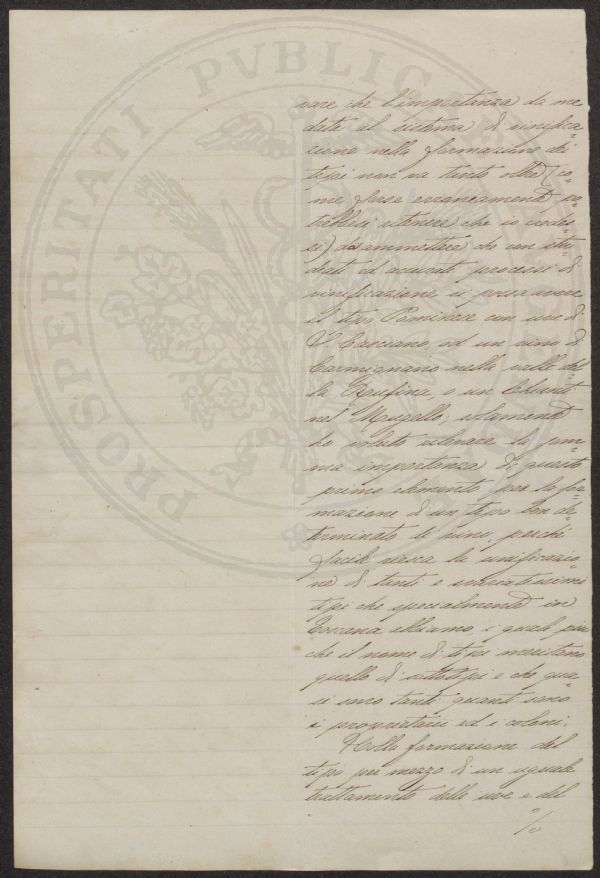 vare che l'importanza da me
data al sistema di vinifica=
zione nella formazione dei
tipi non va tanto oltre (co=
me forse erroneamente po=
trebbesi ritenere che io credes=
si) da ammettere che con stu=
diati ed accurati processi di
vinificazione si possa avere
il tipo Pomino con uve di
S. Casciano, od un vino di
Carmignano nella valle del=
la Rufina, o un Chianti
nel Mugello; solamente
ho voluto rilevare la pri=
ma importanza di questo
primo elemento per la for=
mazione di un tipo ben de=
terminato di vino, perchè
facile riesca la unificazio=
ne di tanti e svariatissimi
tipi che specialmente in
Toscana abbiamo, i quali più
che il nome di tipi meritano
quello di sottotipi e che qua=
si sono tanti quanti sono
i proprietari ed i coloni.
Nella formazione del
tipo per mezzo di un uguale
trattamento delle uve e del
PROSPERITATI PVBLICAE